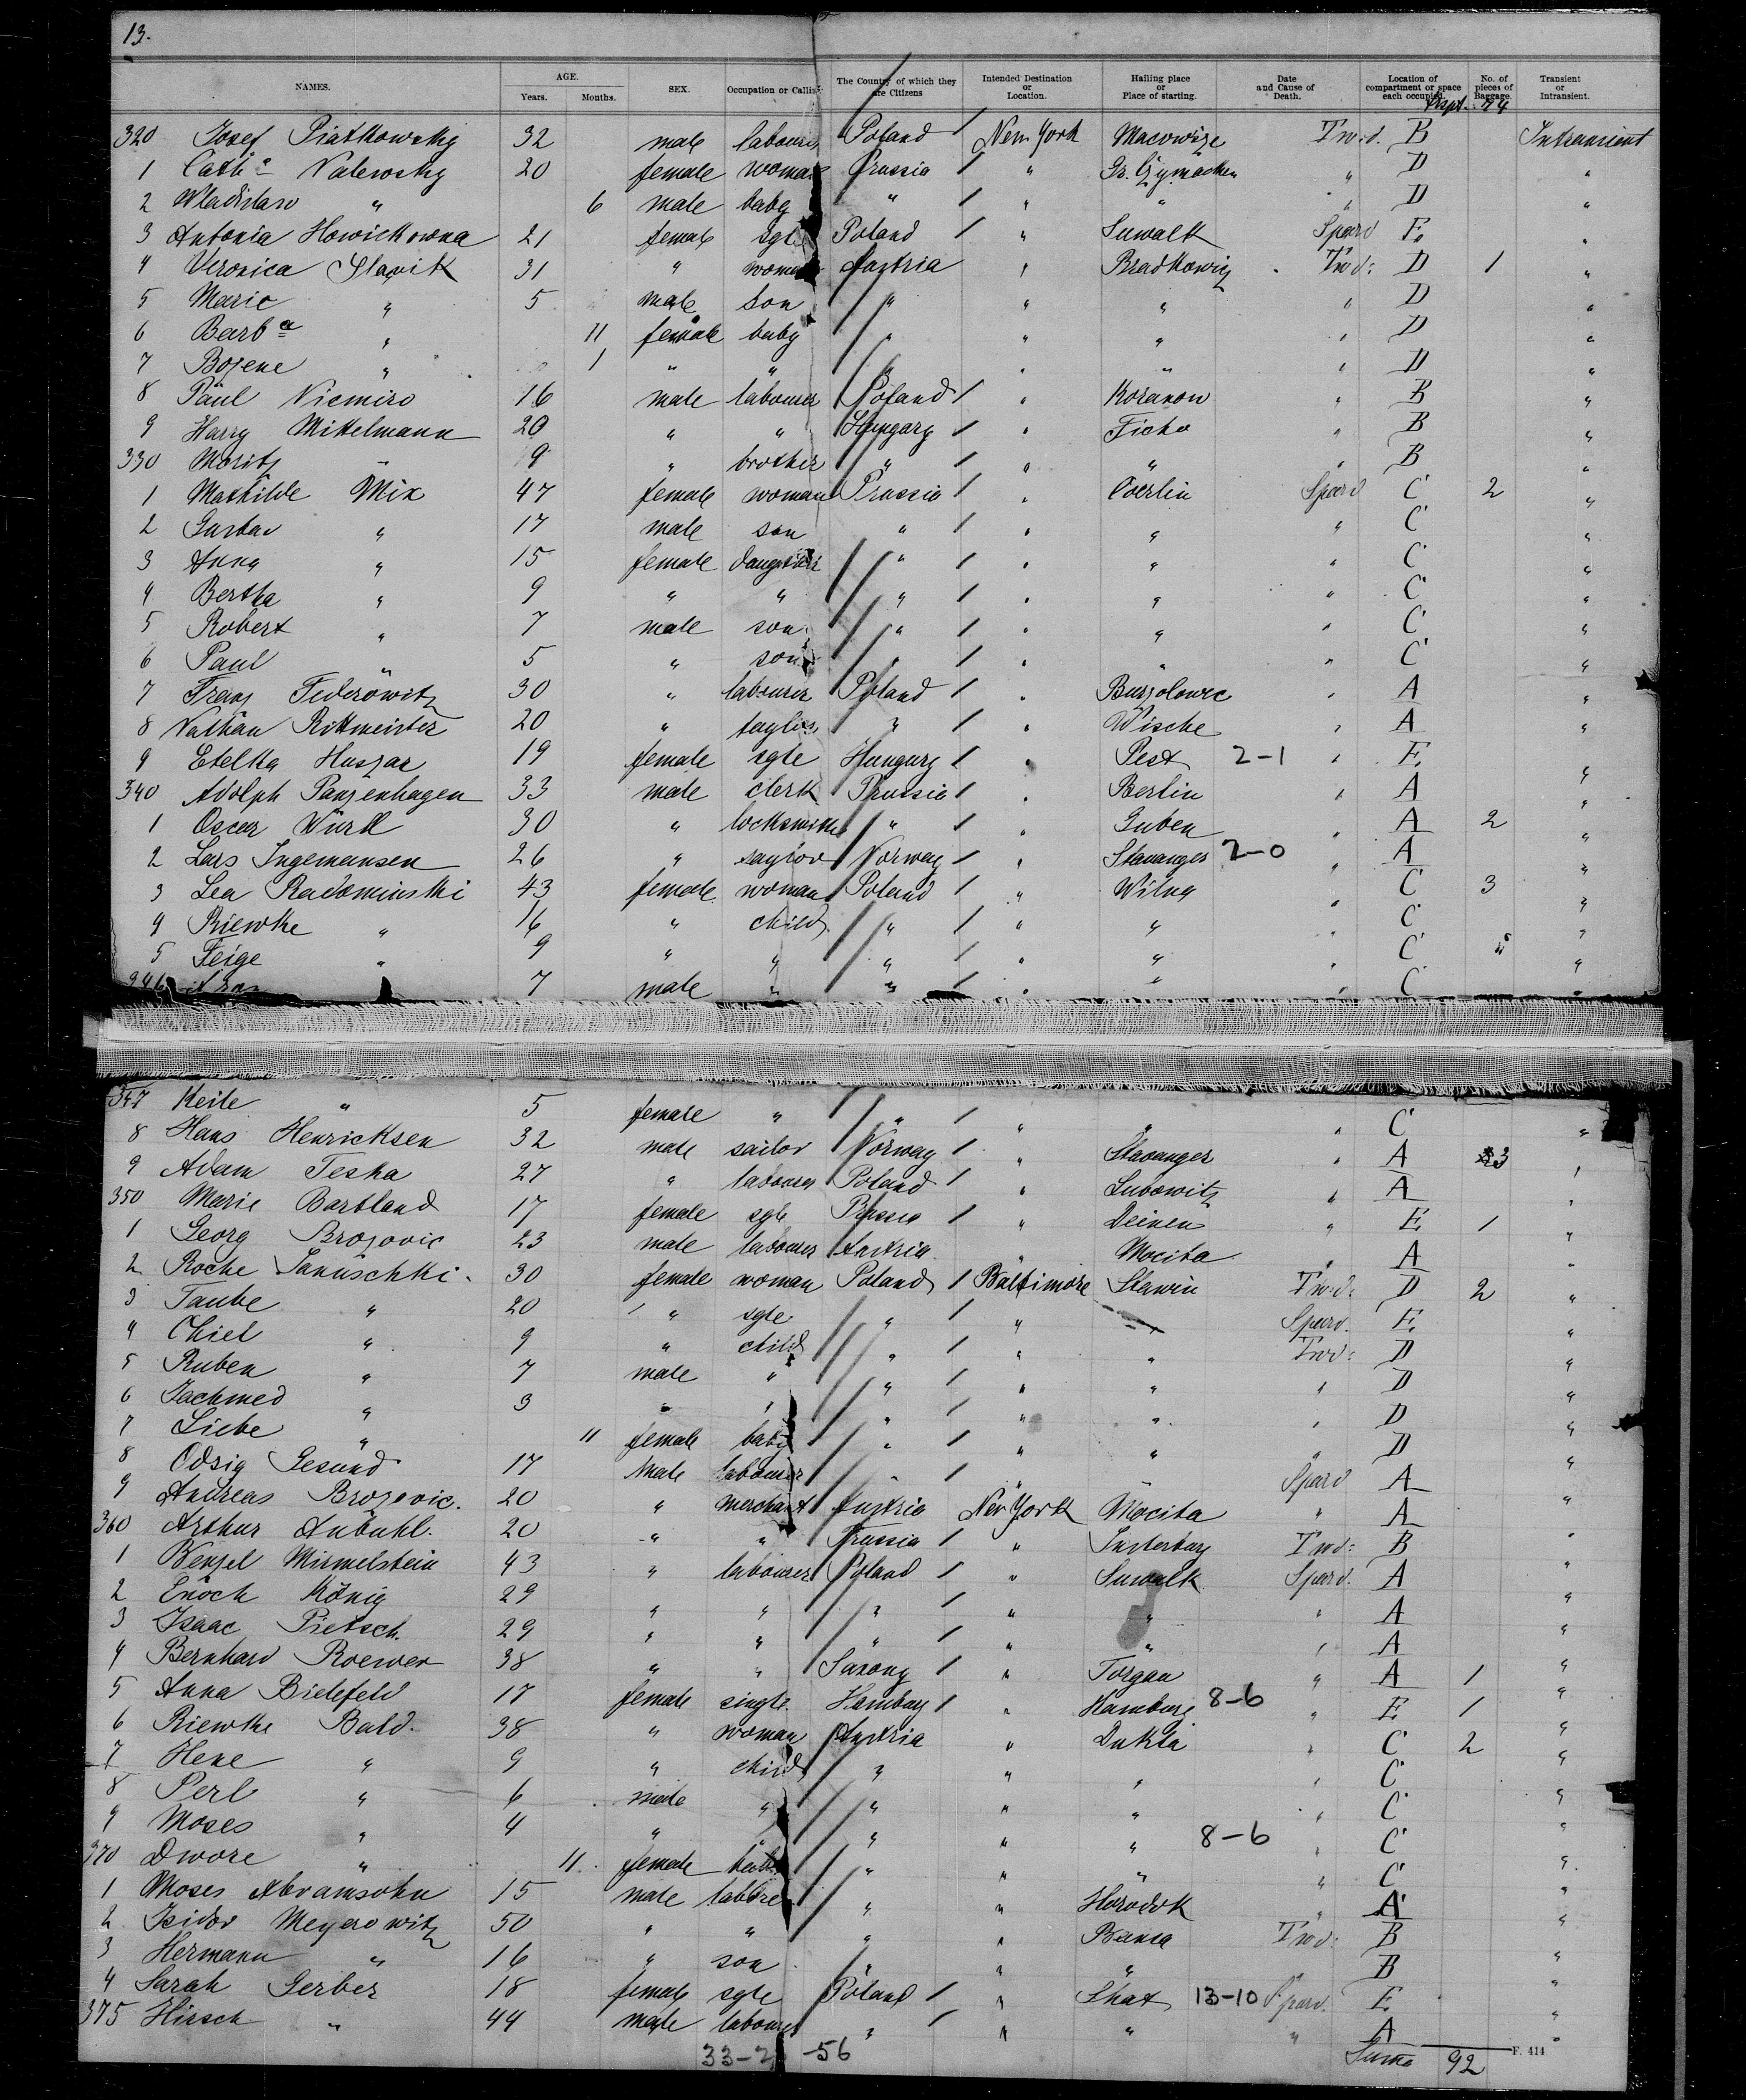 13.
NAMES. AGE. Years. Months. SEX. Occupation or Calling The Country of which they are Citizens Intended Destination or Location. Hailing place or Place of starting. Date and Cause of Death. Location of compartment or space each occupied. No. of pieces of Baggage. Transient or Intransient.
74
320 Josef Piatkowsky 32 male labourer Poland / New York Macowize Twd. B Intransient
1 Cath:a Valewsky 20 female woman Prussia / " " D "
2 Wladislaw " 6 male baby " / " " " D "
3 Antonia Howickowna 21 female sgle Poland / " Suwalk Spard E "
4 Veronica Slavik 31 " woman Austria " Bradkowicz Twd: D 1 "
5 Marie " 5 male son " " " " D "
6 Barba " 11 female baby " " " " D "
7 Bozene " 1 " " " " " " D "
8 Paul Niemiro 16 male labourer Poland / " Koranow " B "
9 Harry Mittelmann 20 " " Hungary / " Ticho " B "
330 Moritz " 9 " brother " / " " " B "
1 Mathilde Mix 47 female woman Prussia / " Coerlin Spard C 2 "
2 Gustav " 17 male son " / " " " C "
3 Anna " 15 female daughter " / " " " C "
4 Bertha " 9 " " " / " " " C "
5 Robert " 7 male son " / " " " C "
6 Paul " 5 " son " / " " " C "
7 Franz Federowitz 30 " labourer Poland / " Burzolowec " A "
8 Nathan Rittmeister 20 " " / " Wische " A "
9 Etelka Huszar 19 female sgle Hungary / " Pest 2-1 " E "
340 Adolph Panzenhagen 33 male clerk Prussia / " Berlin " A "
1 Oscar Würk 30 " locksmith " / " Guben " A 2 "
2 Lars Ingemansen 26 " saylor Norway / " Stavanger 2-0 " A "
3 Lea Radominski 43 female woman Poland / " Wilna " C 3 "
4 Riewke " 16 " child " / " " " C "
5 Feige " 9 " " " / " " " C "
346 " 7 male " " / " " " C "
347 Keile " 5 female " " / " " " C "
8 Hans Henricksen 32 male sailor Norway / " Stavanger " A 3 "
9 Adam Teska 27 " labourer Poland / " Lubowitz " A "
350 Marie Bartland 17 female sgle Prussia / " Deinen " E 1 "
1 Georg Brozovic 23 male labourer Austria " Mocita " A "
2 Roche Januschki. 30 female woman Poland / Baltimore Stawin Twd: D 2 "
3 Taube " 20 " sgle " / " " Spard. E "
4 Chiel " 9 " child " / " " Twd: D "
5 Ruben " 7 male " " / " " " D "
6 Jachmed " 3 " " " / " " " D "
7 Liebe " 11 female baby " / " " " D "
8 Odsig Gesund 17 Male labourer " / " " Spard A "
9 Andreas Brozovic. 20 " merchant Austria New York Mocita " A "
360 Arthur Anbuhl. 20 " " Prussia / " Insterburg Twd: B "
1 Wenzel Mirmelstein 43 " labourer Poland / " Suwalk Spard. A "
2 Enoch König 29 " " " / " " " A "
3 Isaac Pietsch. 29 " " " / " " " A "
4 Bernhard Roewer 38 " " Saxony / " Torgau " A 1 "
5 Anna Bielefeld 17 female single. Hamburg / " Hamburg 8-6 " E 1 "
6 Riewke Bald. 38 " woman Austria " Dukla " C 2 "
7 Hene " 9 " child " " " " C "
8 Perl " 6 male " " " " " C "
9 Moses " 4 " " " " " 8-6 " C "
370 Dwore " 11 female baby " " " " C "
1 Moses Abramsohn 15 male laborer " " Horodok " A "
2 Isidor Meyerowitz 50 " " " " Banca Twd: B "
3 Hermann " 16 " son " " " B "
4 Sarah Gerber 18 female sgle Poland / " Shat 13-10 Spard. E "
375 Hirsch " 44 male labourer " / " " " A "
33-2 -56
Suma 92
F. 414